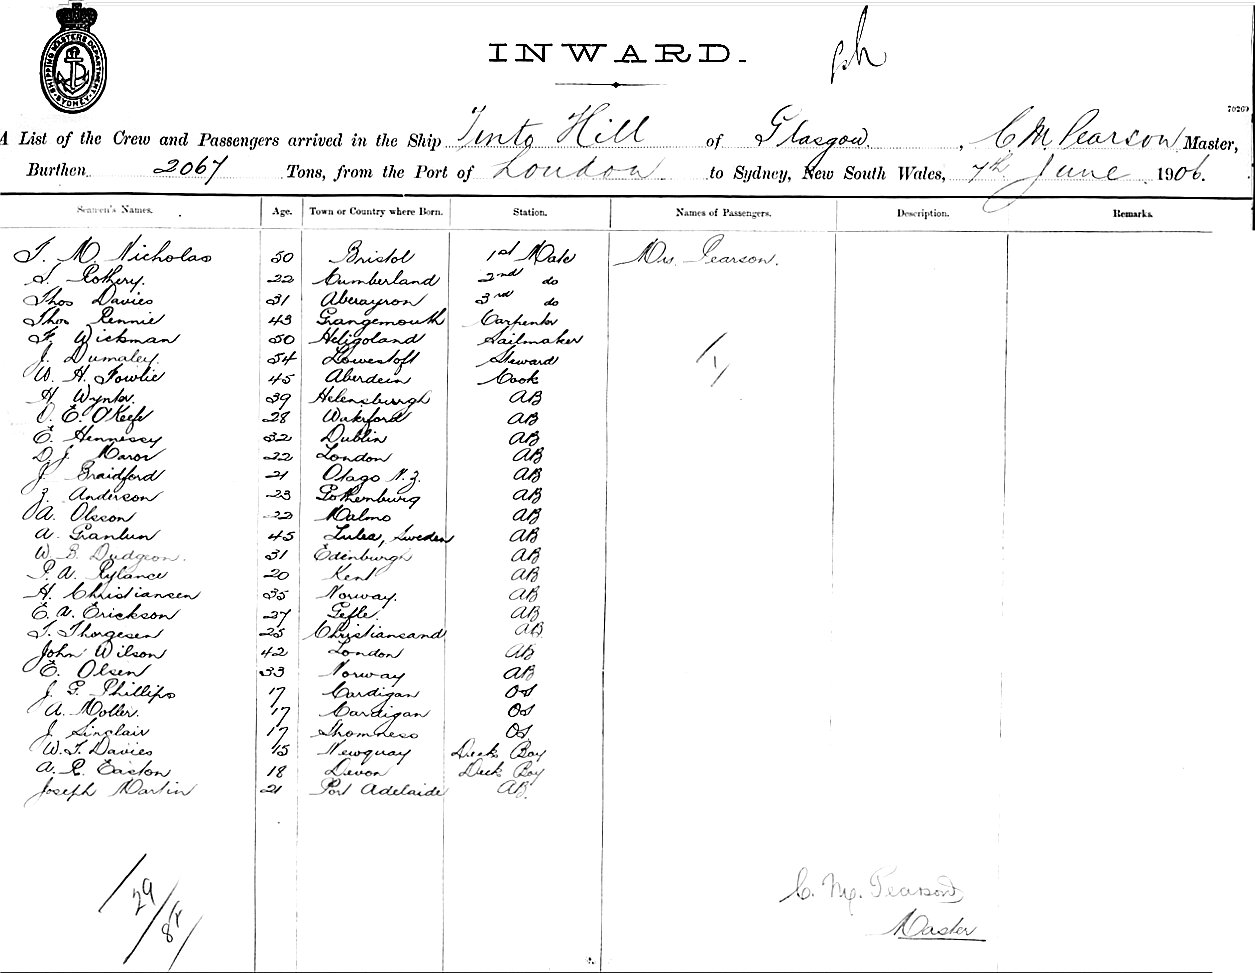 SHIPPING MASTERS DEPARTMENT SYDNEY
INWARD.
A List of the Crew and Passengers arrived in the Ship Tinto Hill of Glasgow, C. M. Pearson Master,
Burthen 2067 Tons, from the Port of London to Sydney, New South Wales, 7th June 1906.
Seamen's Names. Age. Town or Country where Born. Station. Names of Passengers. Description. Remarks.
T. M. Nicholas 50 Bristol 1st Mate Mrs. Pearson.
T. Rothery. 22 Cumberland 2nd do
Thos Davies 31 Aberayron 3rd do
Thos Rennie 43 Grangemouth Carpenter
F. Wickman 50 Heligoland Sailmaker
J. Dumaley. 54 Lowestoft Steward
W. H. Fowlie 45 Aberdein Cook
H. Wynter. 39 Helensburgh AB
E. O'Keefe 28 Waterford AB
E. Hennessy 32 Dublin AB
D. J. 22 London AB
J. Braidford 21 Otago N.Z. AB
Z. Anderson 23 Gothenburg AB
A. Olsson 22 Malmo AB
A. Granlun 45 Lulea, Sweden AB
W. B. Dudgeon. 31 Edinburgh AB
P. A. Rylance 20 Kent AB
H. Christiansen 35 Norway. AB
E. A. Erickson 27 Gefle. AB
T. Thorgesen 25 Christiansand AB
John Wilson 42 London AB
E. Olsen 33 Norway AB
J. G. Phillips 17 Cardigan OS
A. Moller. 17 Cardigan OS
J. Sinclair 17 OS
W. T. Davies 15 Newquay Deck Boy
A. R. Easton 18 Devon Deck Boy
Joseph Martin 21 Port Adelaide AB.
29
C. M. Pearson
Master